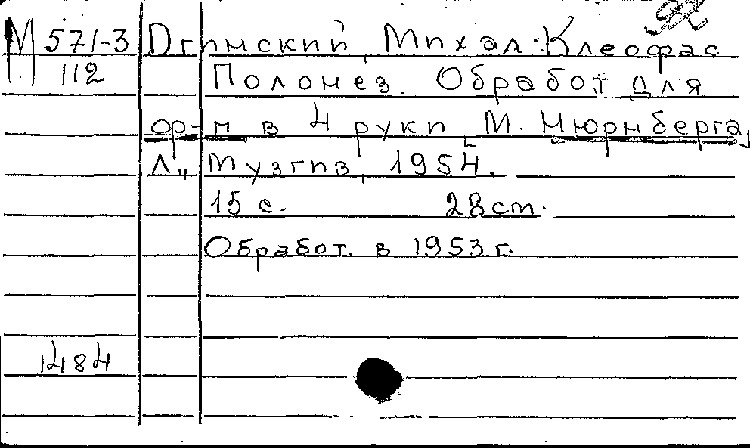 М 571-3 Огинский, Михал-Клеофас
112 Полонез. Обработ. для
ф-п в 4 руки М. Нюрнберга,
Л., Музгиз, 1954.
15 с. 28 см.
Обработ. в 1953 г.
1484